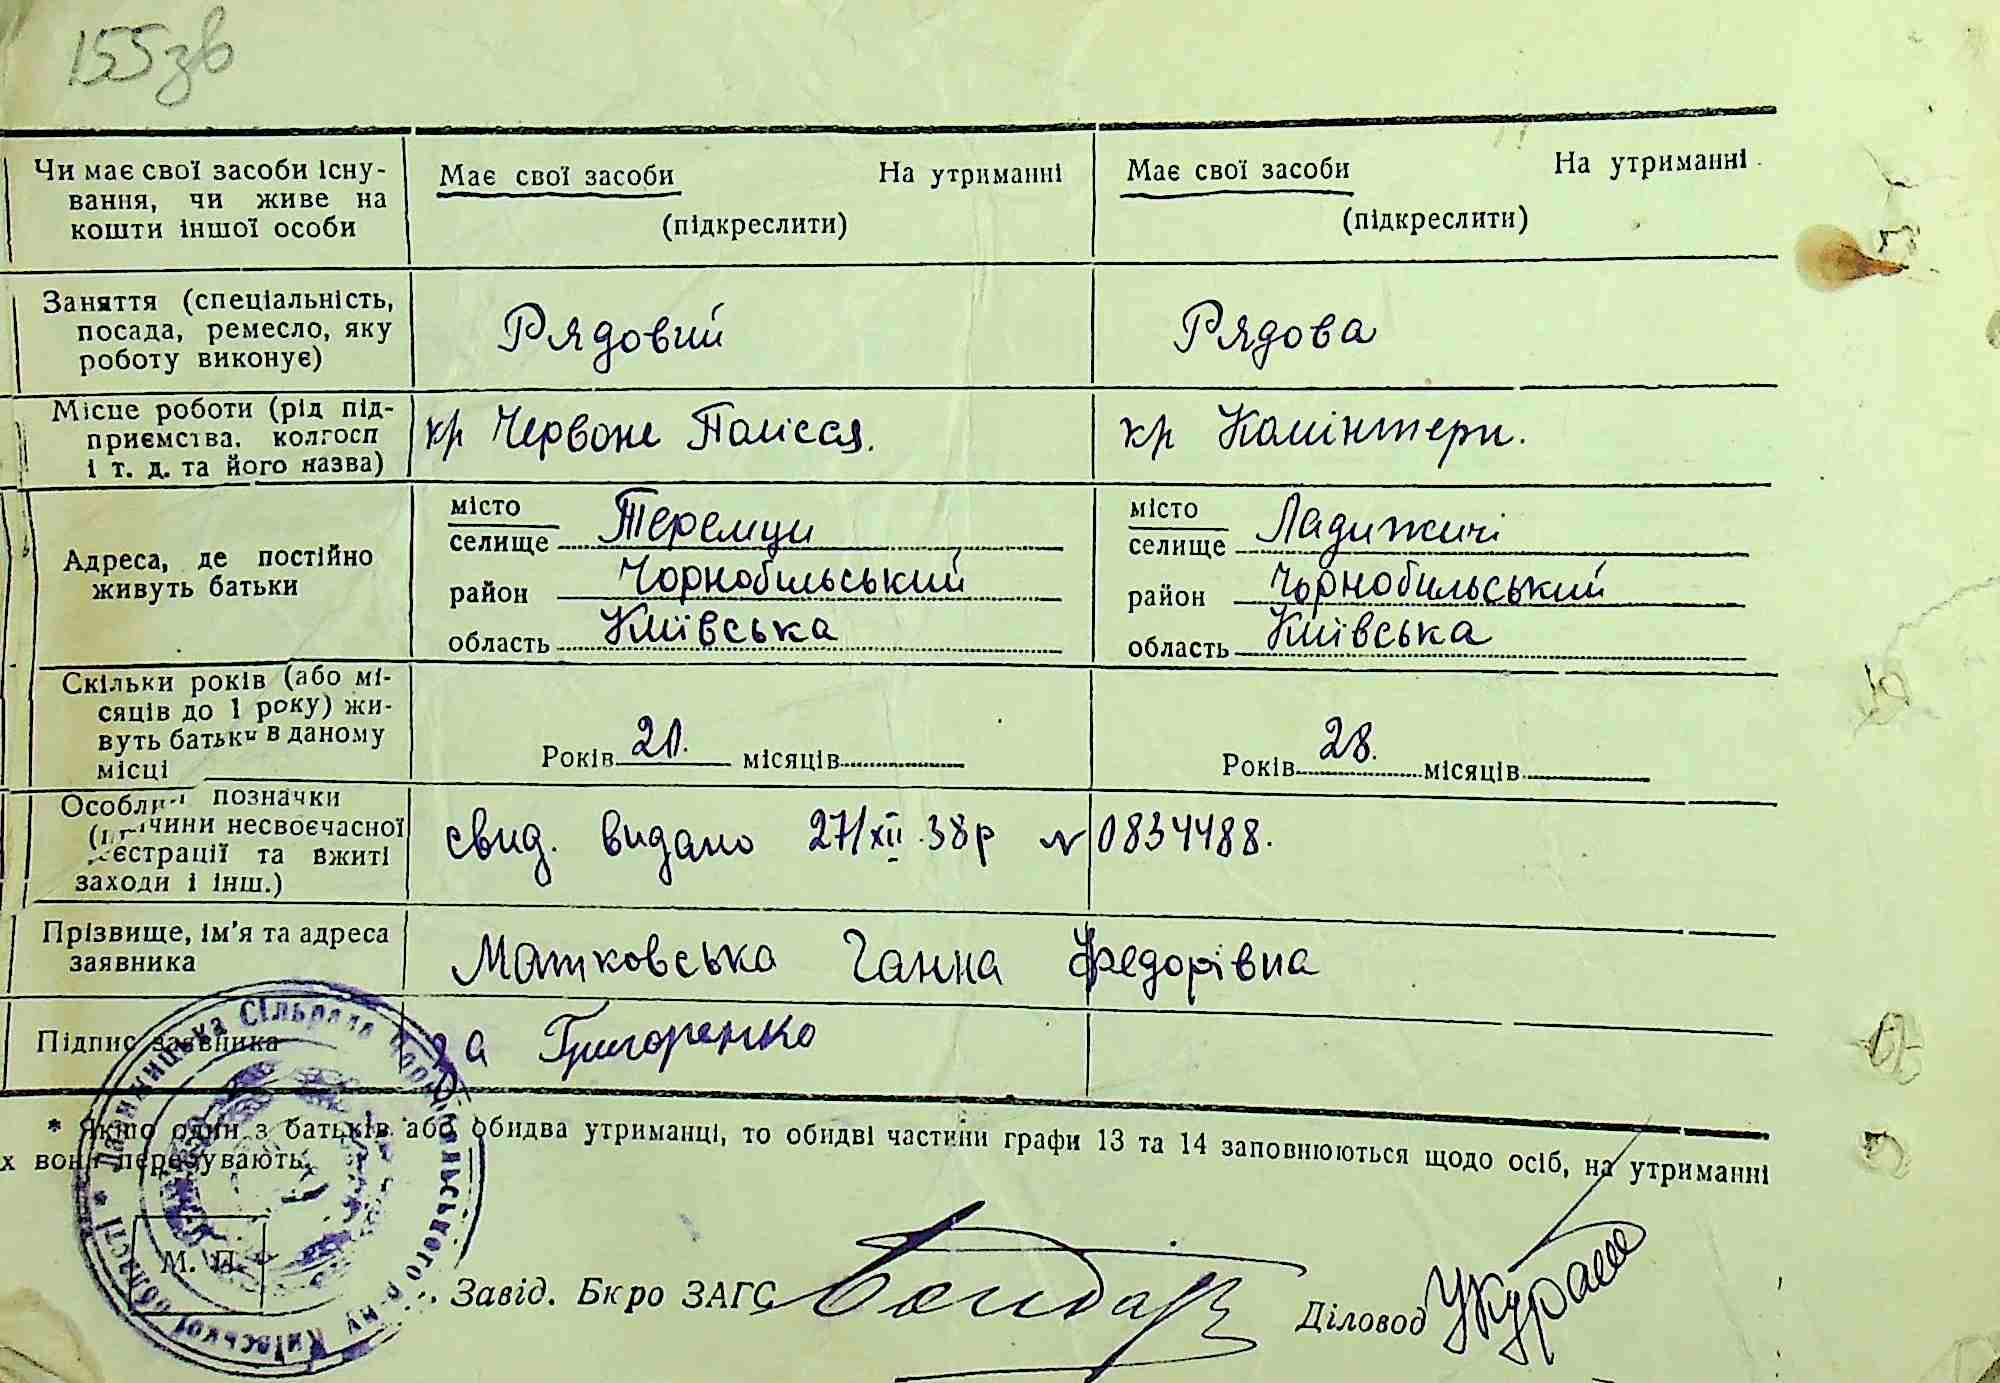 155зв
Чи має свої засоби існу-
вання, чи живе на
кошти іншої особи
Має свої засоби На утриманні
(підкреслити)
Має свої засоби На утриманні
(підкреслити)
Заняття (спеціальність,
посада, ремесло, яку
роботу виконує)
Рядовий
Рядова
Місце роботи (рід під-
приємства, колгосп
і т. д. та його назва)
кр Червоне Полісся.
кр Комінтерн.
Адреса, де постійно
живуть батьки
місто
селище Теремци
район Чорнобильський
область Київська
місто
селище Ладижичі
район Чорнобильський
область Київська
Скільки років (або мі-
сяців до 1 року) жи-
вуть батьки в даному
місці
Років 20. місяців
Років 28. місяців
позначки
несвоєчасної
та вжиті
заходи і інш.)
свид. видано 27/XII.38р № 0834488.
Прізвище, ім'я та адреса
заявника
Матковська Ганна Федорівна
Підпис заявника
за Григоренко
* Якщо один з батьків або обидва утриманці, то обидві частини графи 13 та 14 заповнюються щодо осіб, на утриманні
х вони перебувають.
М. П.
Завід. Бюро ЗАГС Бондар
Діловод